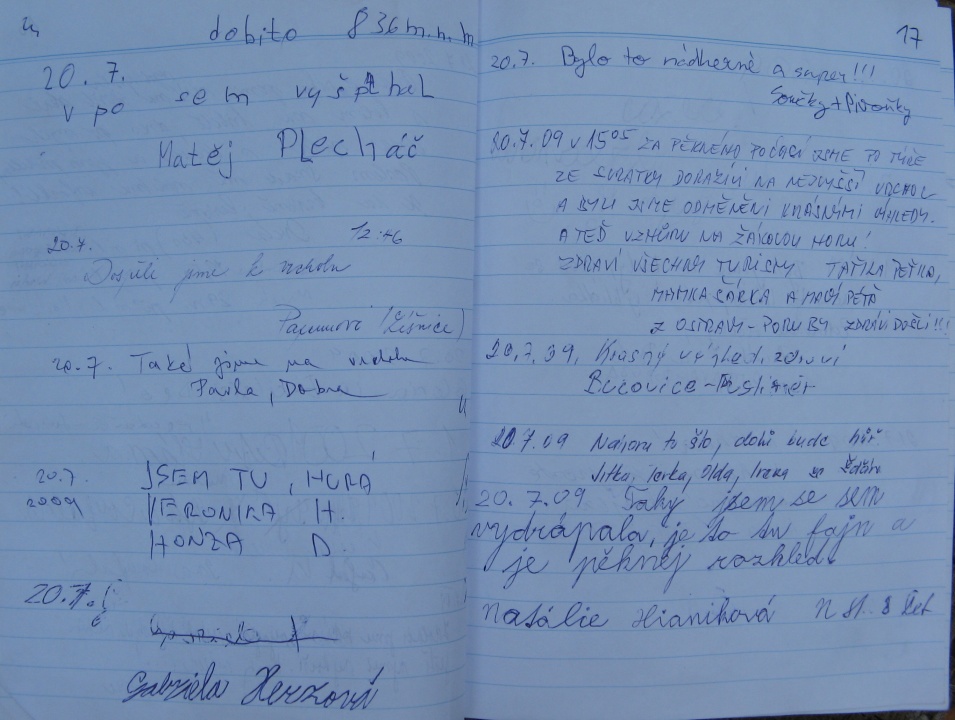 dobito 836 m.n.m
20.7.
v po sem vyšplhal
Matěj Plecháč
20.7. 12:46
Dospěli jsme k vrcholu
(Lišnice)
20.7. Také jsme na vrcholu
Pavla, Dobra
20.7. JSEM TU, HURÁ
2009 VERONIKA H.
HONZA D.
20.7.
Gabriela Herzová
17
20.7. Bylo to nádherné a super!!!
Součky + Pivoňky
20.7.09 v 15 05 ZA PĚKNÉHO POČASÍ JSME PO TÚŘE
ZE SVRATKY DORAZILI NA NEJVYŠŠÍ VRCHOL
A BYLI JSME ODMĚNĚNI KRÁSNÝMI VÝHLEDY.
A TEĎ VZHŮRU NA ŽÁKOVU HORU!
ZDRAVÍ VŠECHNY TURISTY TAŤKA PEŤKA,
MAMKA ŠÁRKA A MALÝ PÉŤA
Z OSTRAVY-PORUBY ZDRÁVI DOŠLI!!!
20.7.09. Krásný výhled. zdraví
Bučovice -
20.7.09 Nahoru to šlo, dolů bude hůř
Jitka, Jarka, Olda,
20.7.09 Taky jsem se sem
vydrápala, je to tu fajn a
je pěknej rozhled.
Natálie Hianiková N st. 8 let